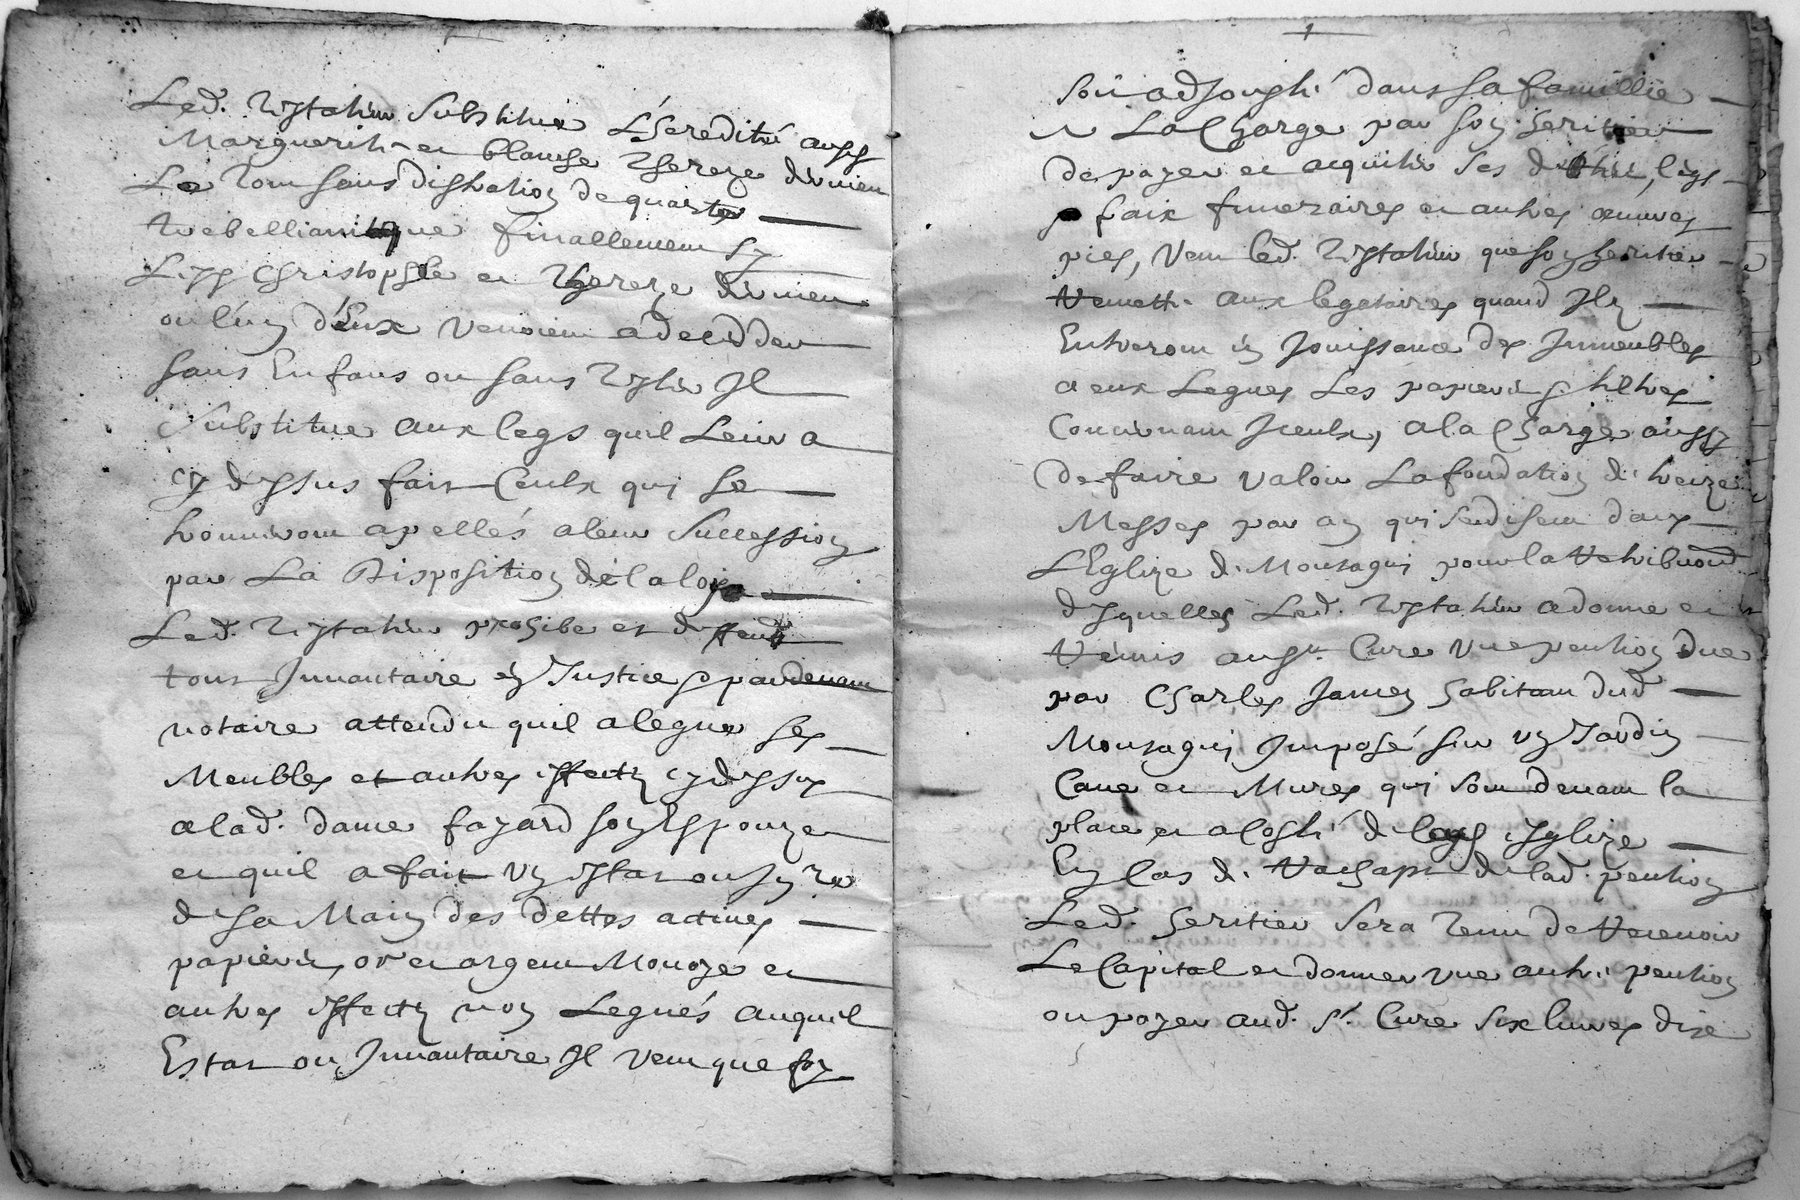 Led. testateur substitue l'heredité auxd
Marguerite et blanche thereze dervieu
Le tout sans distraction de quarte
trebellianique finallement sy
Lesd Christophle et thereze dervieu
ou l'un d'Eux venoient a decedder
sans Enfans ou sans tester Il
substitue aux legs quil Leur a
cy dessus fait Ceulx qui se
trouveront apellés a leur succession
par La Disposition de la loy
Led. testateur prohibe et deffend
tout Inuantaire en Justice et pardeuant
notaire attendu quil a legue ses
Meubles et autres effects cy dessus
a lad. dame fayard son Espouze
et quil a fait un estat ou Inre
de sa Main des dettes actives
papiers, or et argent Monoyé et
autres effects non Legués auquel
Estat ou Inuantaire Il veut que foy
soit adjousté dans sa famillie
A La Charge par son heritier
de payer et acquiter ses dettes, legs
fraix funeraires et autres œuures
pies, veut led. testateur que son heritier
remette aux legataires quand Ils
Entreront en Jouissance des Immeubles
a eux Legues Les papiers et tiltres
Concernant Iceulx, a la Charge aussy
de faire valoir La fondation de treize
Messes par an qui se disent dans
L'Eglize de Montagni pour la retribuon
desquelles Led. testateur a donne et
remis aud sr. Cure une pention due
par Charles Jamen habitant dud
Montagni Imposé sur un Jardin
Caue et Mures qui sont deuant la
place et a Costé de lad Eglize
En Cas de rachapt de lad. pention
Led. heritier sera tenu de receuoir
Le Capital et donner une autre pention
ou payer aud. sr. Cure six liures dixe